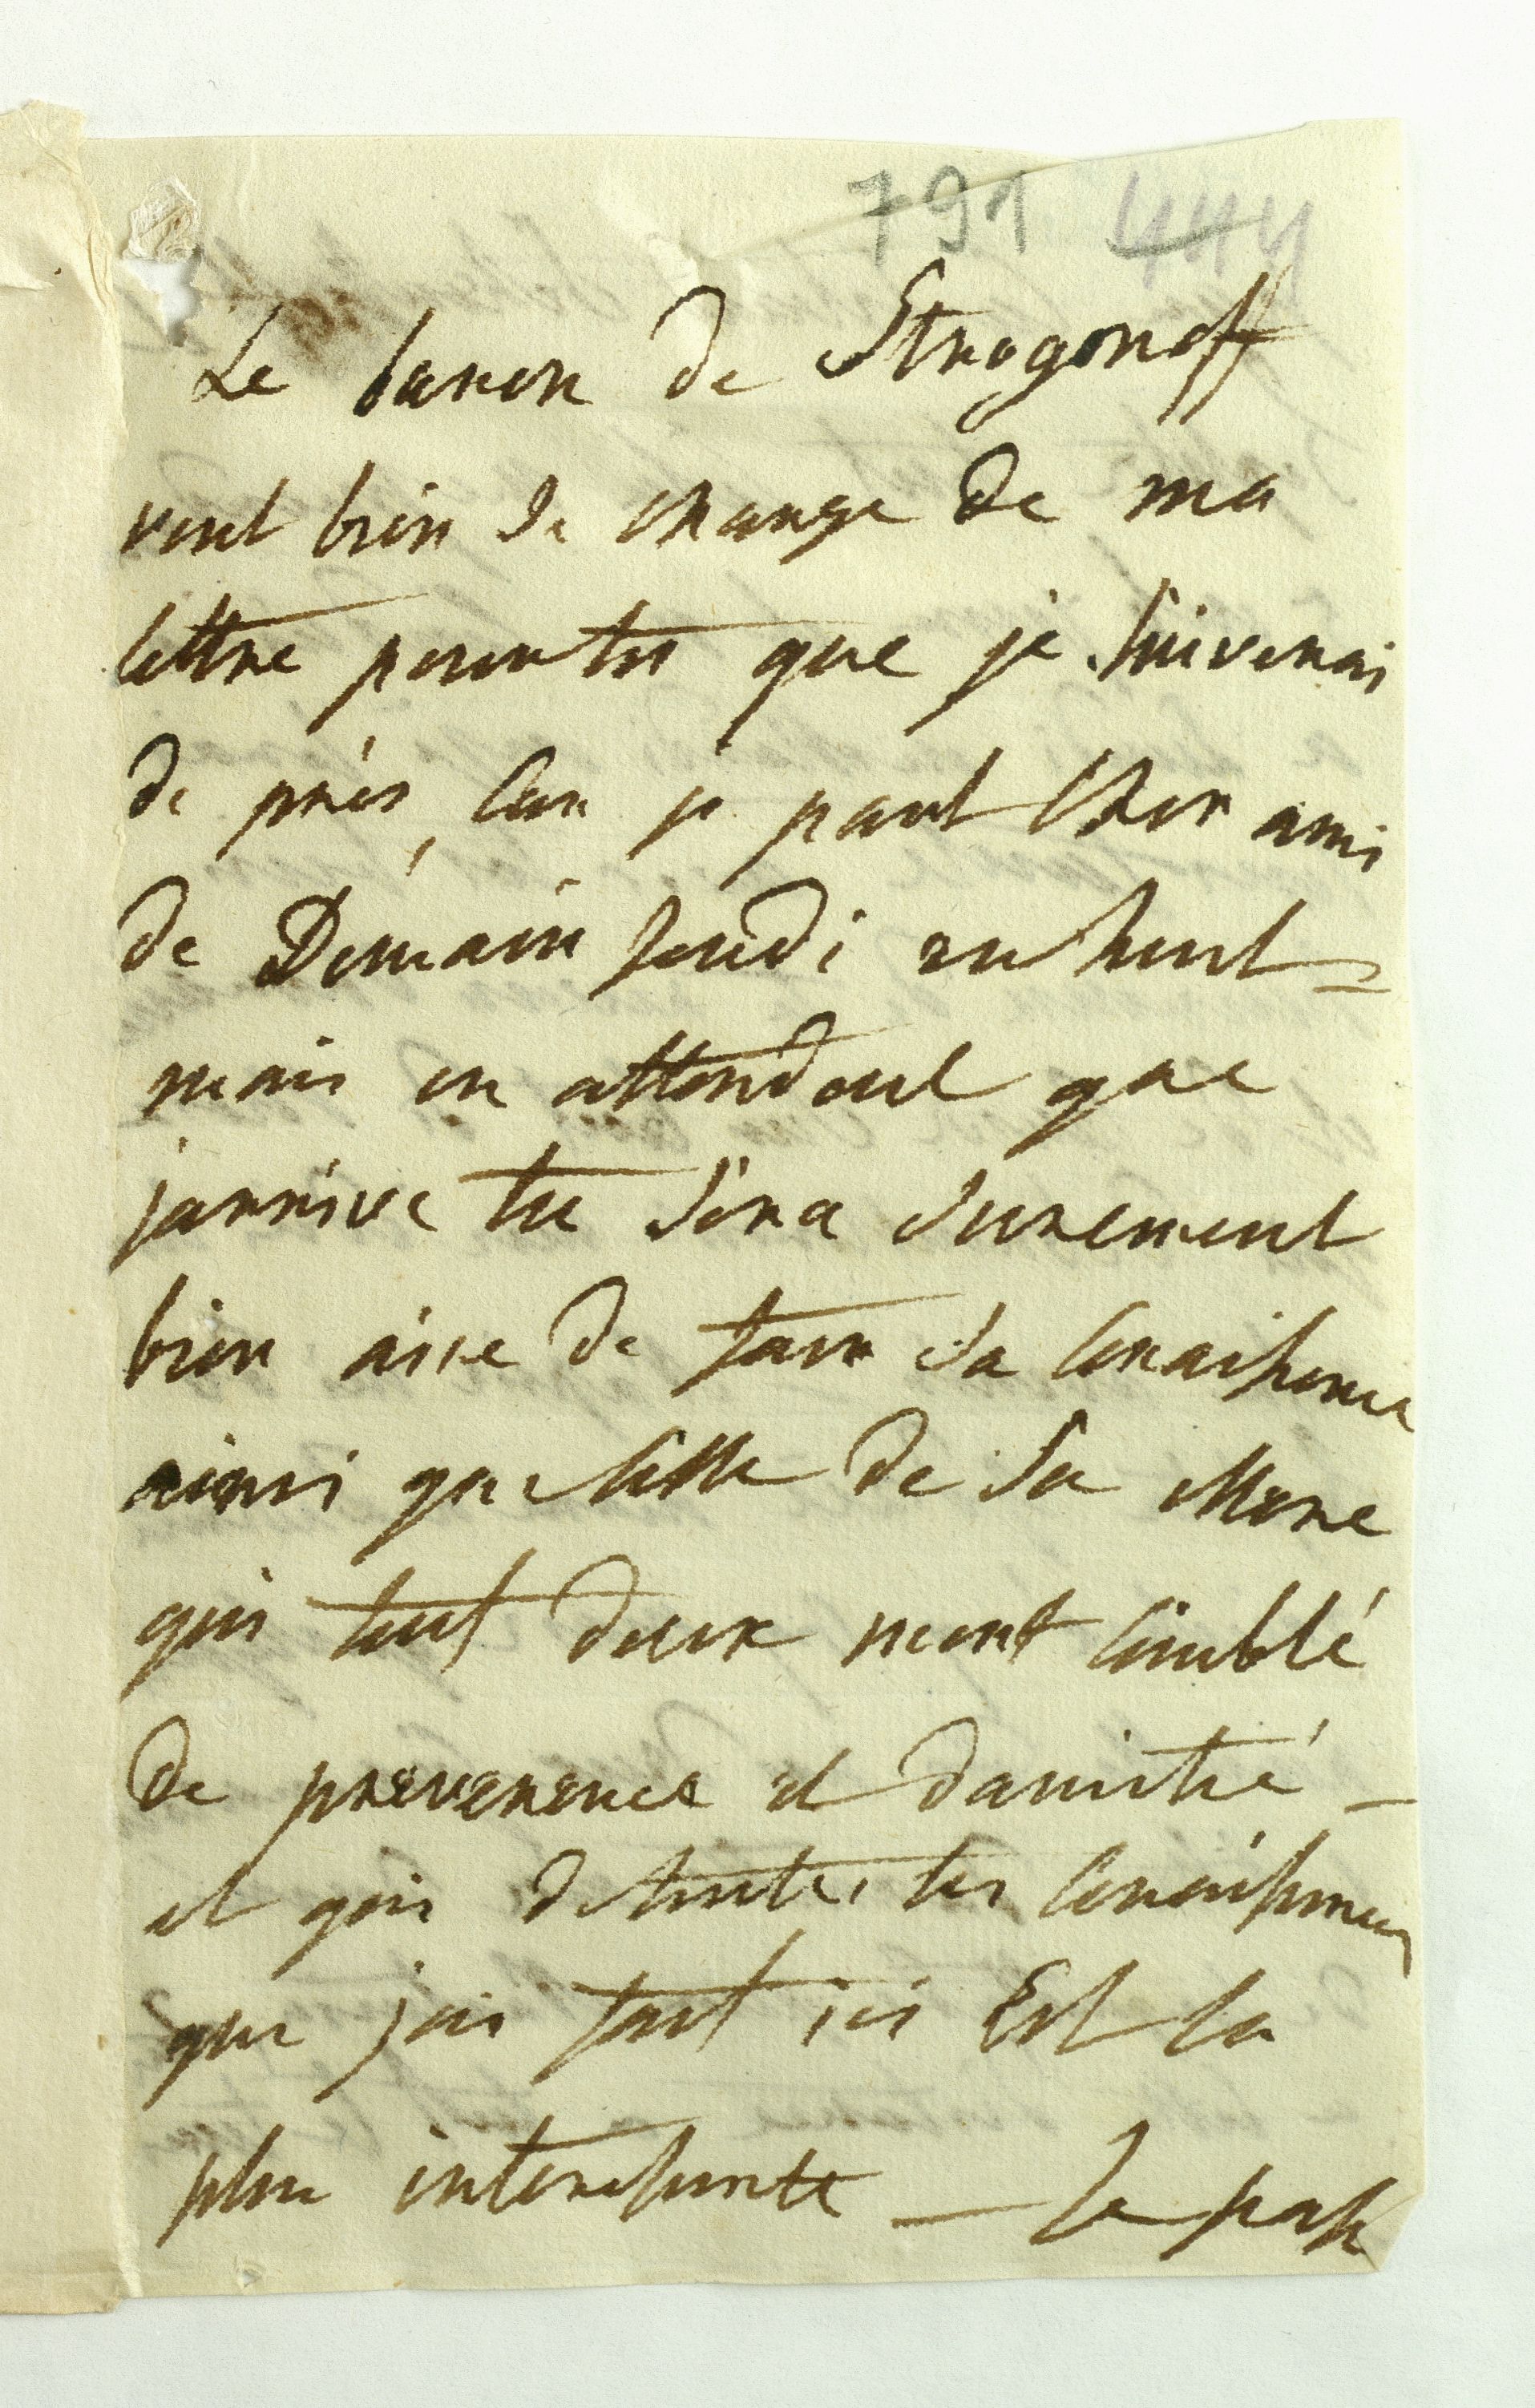 791 444
Le baron de Strogonoff
veut bien se charge de ma
lettre pour toi que je suiverai
de près, Car je part Cher ami
de Demain Jeudi en huit =
mais en attendant que
jarrive tu sera surement
bien aise de faire sa Conaissance
ainsi que celle de sa Mere
qui tout deux mont Comblé
de prevenence et damitié –
et qui de toutes les Conaissances
que jai fait ici Est la
plus interessante — Je passe